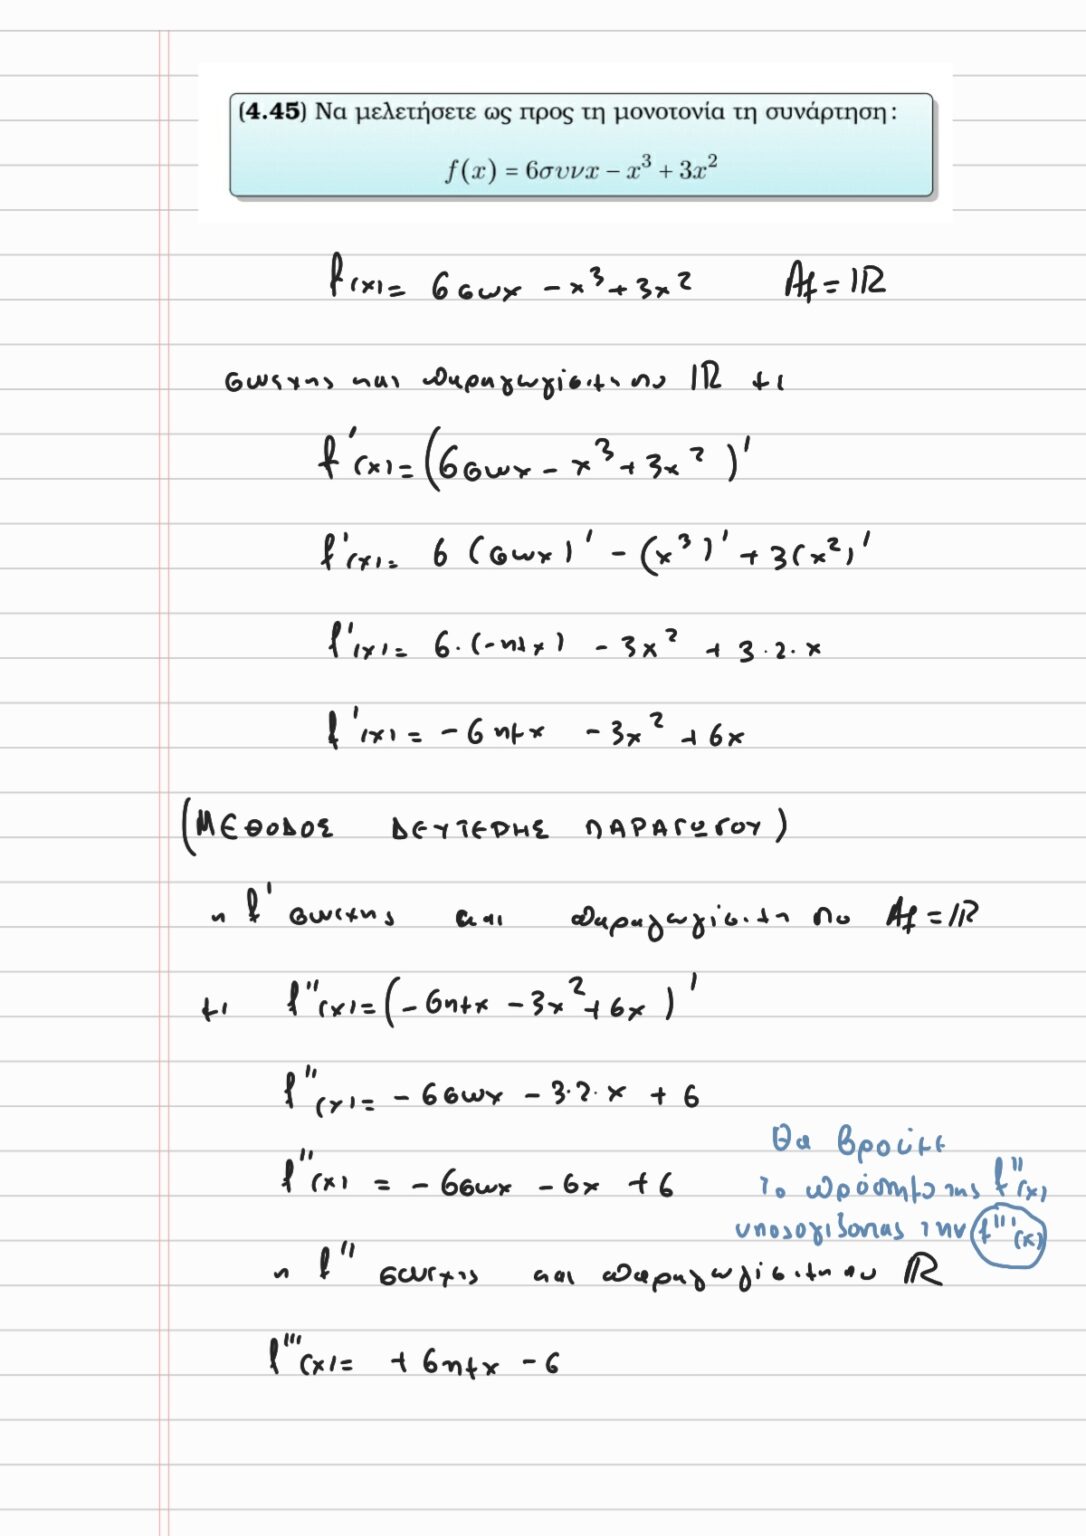 (4.45) Να μελετήσετε ως προς τη μονοτονία τη συνάρτηση:
f(x) = 6συνx − x³ + 3x²
f(x) = 6συνx − x³ + 3x² Af = ℝ
συνεχης και παραγωγίσιμη στο ℝ με
f'(x) = (6συνx − x³ + 3x²)'
f'(x) = 6(συνx)' − (x³)' + 3(x²)'
f'(x) = 6·(−ημx) − 3x² + 3·2·x
f'(x) = −6ημx − 3x² + 6x
(ΜΕΘΟΔΟΣ ΔΕΥΤΕΡΗΣ ΠΑΡΑΓΩΓΟΥ)
η f' συνεχης και παραγωγίσιμη στο Af = ℝ
με f''(x) = (−6ημx − 3x² + 6x)'
f''(x) = −6συνx − 3·2·x + 6
Θα βρούμε
f''(x) = −6συνx − 6x + 6
το πρόσημο της f''(x)
υπολογιζοντας την f'''(x)
η f'' συνεχης και παραγωγίσιμη στο ℝ
f'''(x) = +6ημx − 6